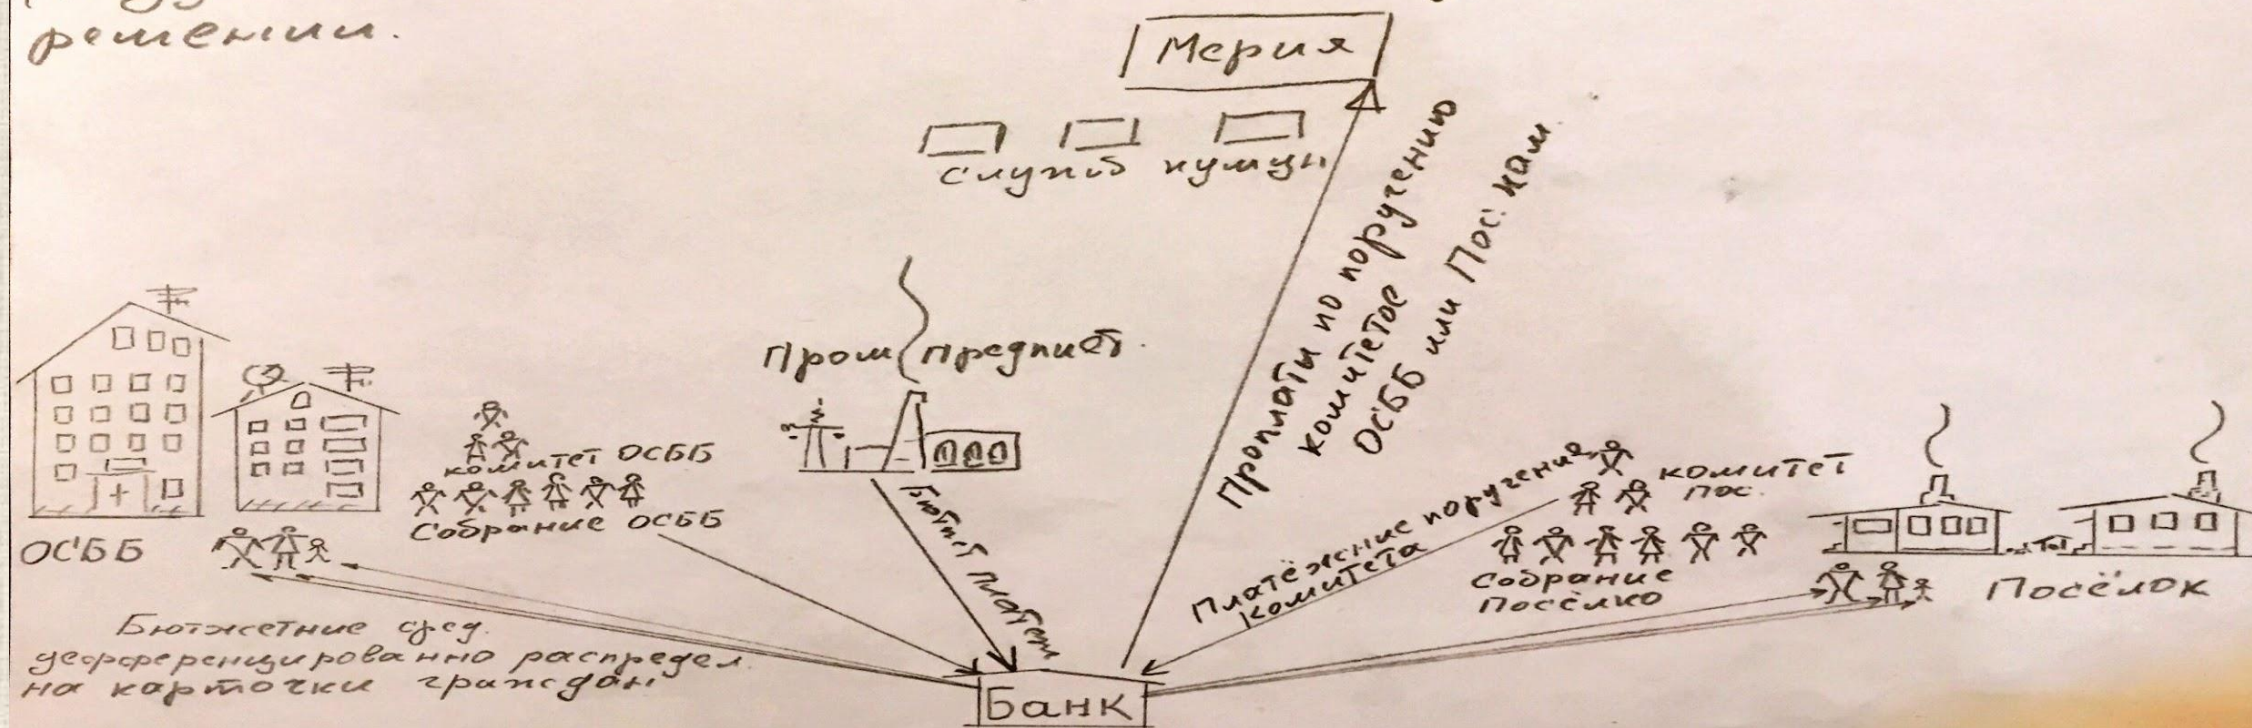 решении.
Мерия
служб куму
Проплаты по поручению
комитетов
ОСББ или Пос. кам.
Пром предпиет.
комитет ОСББ
Собрание ОСББ
ОСББ
Бютжет платежи
Платёжние поручение
комитета
комитет
пос.
Собрание
Посёлко
Посёлок
Бютжетние сред.
дефференцированно распредел.
на карточки граждан.
Банк